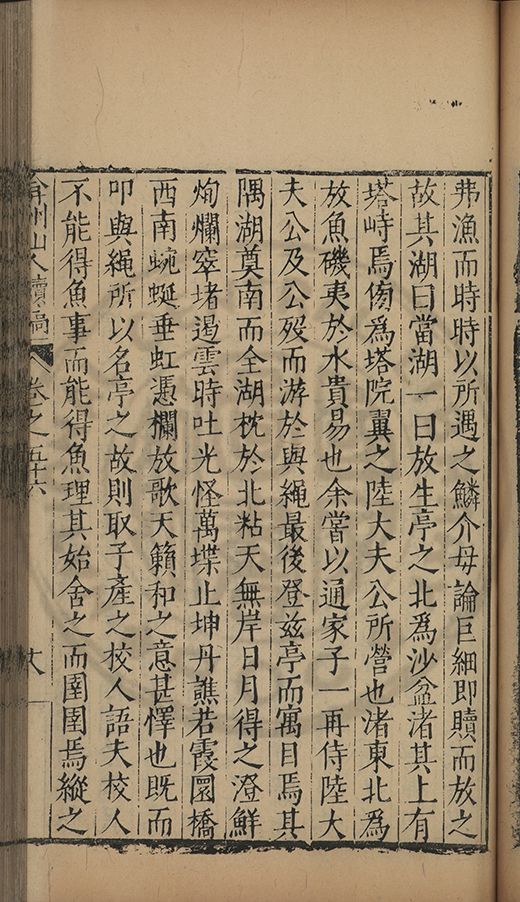 弗漁而時時以所遇之鱗介毋論巨細即贖而放之
故其湖曰當湖一曰放生亭之北為沙盆渚其上有
塔峙焉傍為塔院翼之陸大夫公所營也渚東北為
放魚磯夷於水貴易也余嘗以通家子一再侍陸大
夫公及公歿而游於與繩最後登茲亭而寓目焉其
隅湖奠南而全湖枕於北粘天無岸日月得之澄鮮
絢爛窣堵遏雲時吐光怪萬堞止坤丹譙若霞圜橋
西南蜿蜒垂虹憑欄放歌天籟和之意甚懌也既而
叩與繩所以名亭之故則取子產之校人語夫校人
不能得魚事而能得魚理其始舍之而圉圉焉縱之
弇州山人續稿 卷之五十六